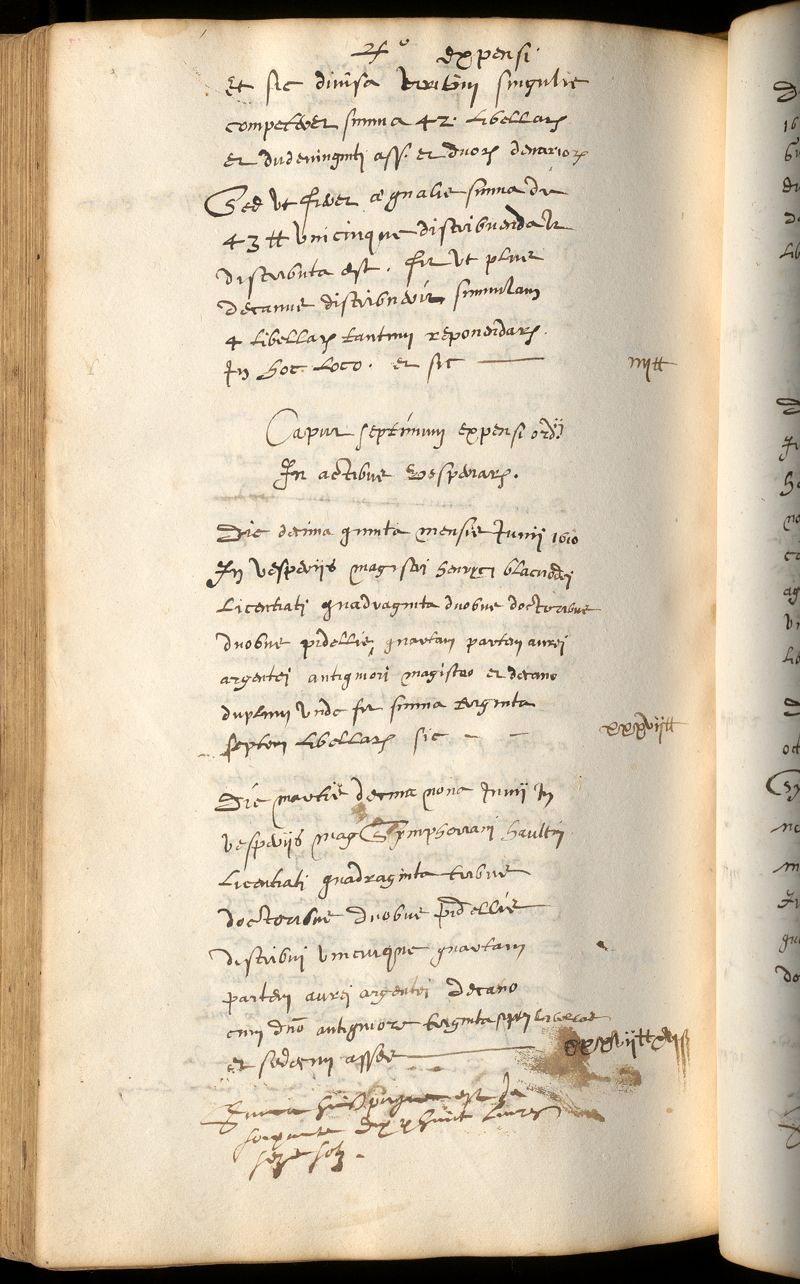 expensi
Et sic divisa singulis
competeret summa 42 libellarꝝ
et duodeviginti ass. et duorꝝ denariorꝝ
Sed ut fieret æqualis summa de
43 ₶ unicuique distribuenda
distributa est. fit ut plus
decanus distribuerit summulam
4 libellarꝝ tantum reponendarꝝ
In hoc loco. et sic
iiij₶
Caput septimum expensi ordij
In actibus vesperiarꝝ.
Die decima quinta mensis Junij 1610
In vesperijs magistri henrici blacuodei
Licentiati quadraginta duobus doctoribus
duobus pidellis quartam partem aurei
argentei antiquiori magistro et decano
duplum unde fit summa triginta
septem libellarꝝ sic
xxxvij₶
Die martis decima nona Junij In
vesperijs mag Symphoriani haultin
Licentiati quadraginta tribus
doctoribus duobus pidellis
distribui unicuique quartam
partem aurei argentei decano
cum dno antiquiore triginta septem libellas
et sedecim asses
xxxvij₶ xvjß
Summa huius pagine est de
soixante dix huict livres
seze solz.